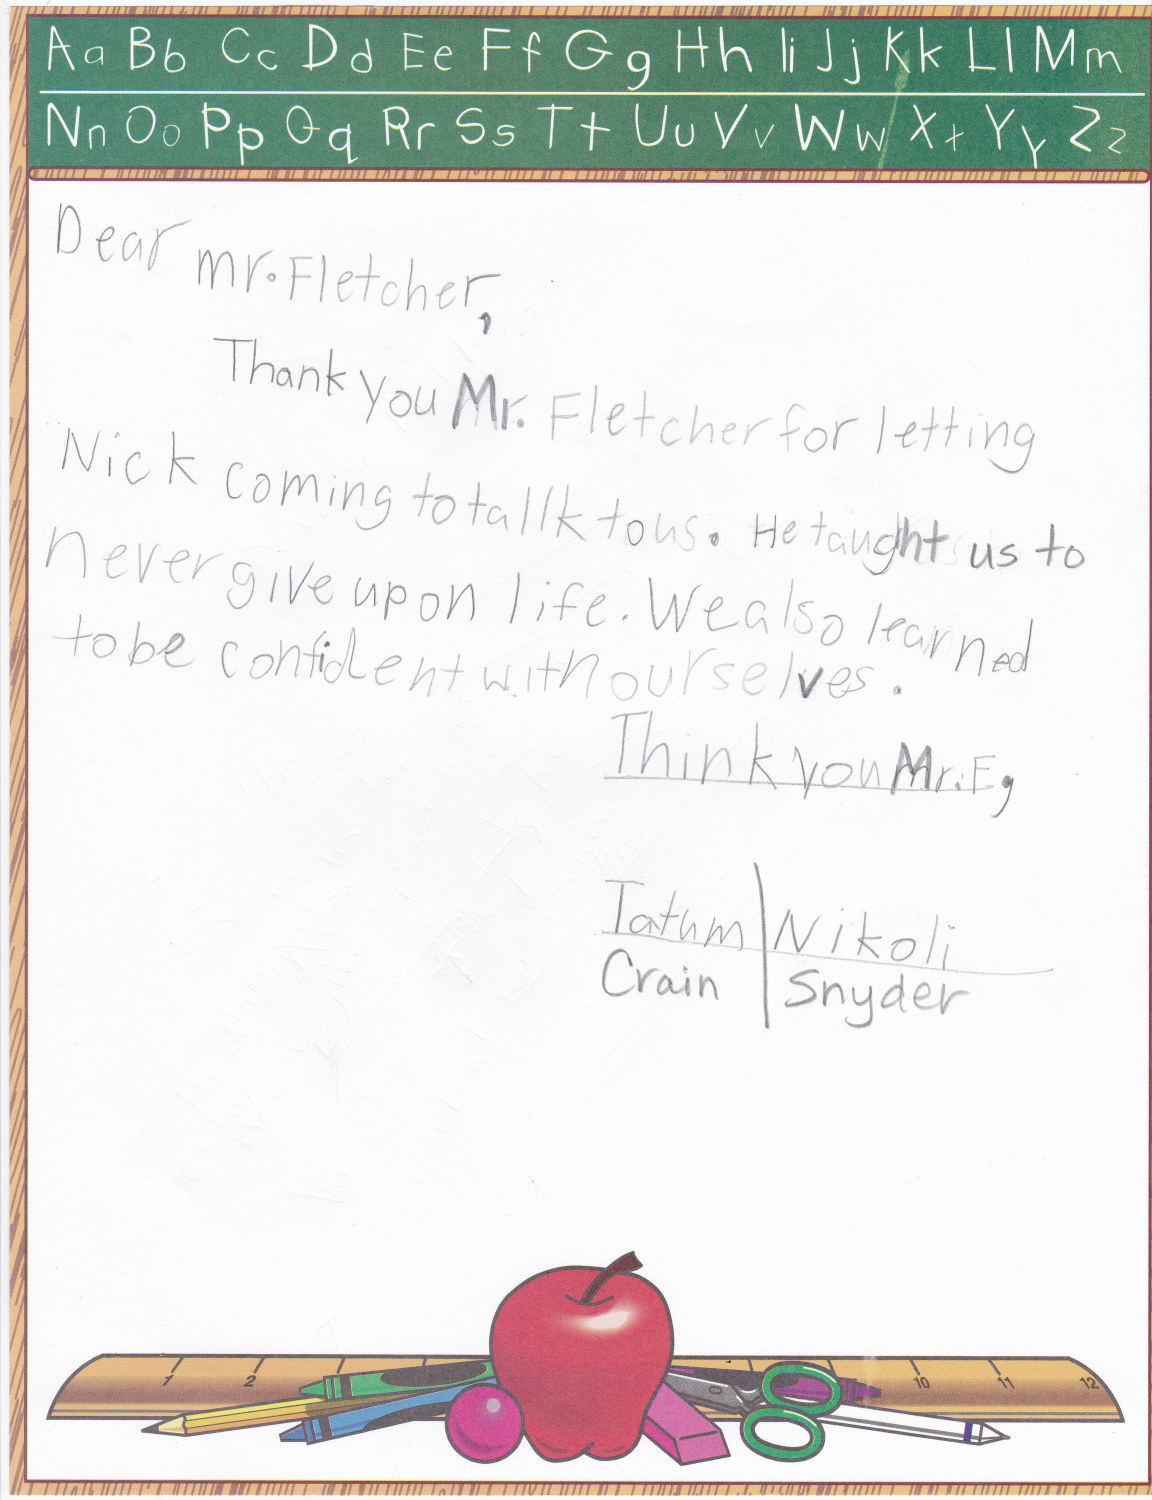 Aa Bb Cc Dd Ee Ff Gg Hh Ii Jj Kk Ll Mm
Nn Oo Pp Qq Rr Ss Tt Uu Vv Ww Xx Yy Zz
Dear mr. Fletcher,
Thank you Mr. Fletcher for letting
Nick coming to tallk to us. He taught us to
never give up on life. We also learned
to be confident with ourselves.
Think you Mr. F,
Tatum | Nikoli
Crain | Snyder
1 2 10 11 12